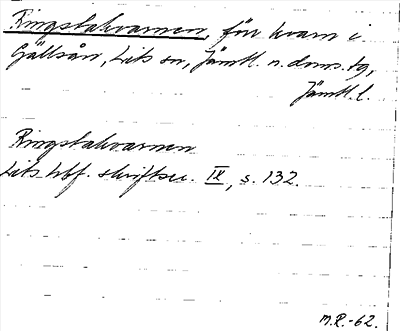 Ringstakvarnen, för kvarn i
Gällsån, Lits sn, Jämtl. n. doms. tg,
Jämtl. l.
Ringstakvarnen
Lits hbf. skriftser. IX, s. 132.
M.R.-62.